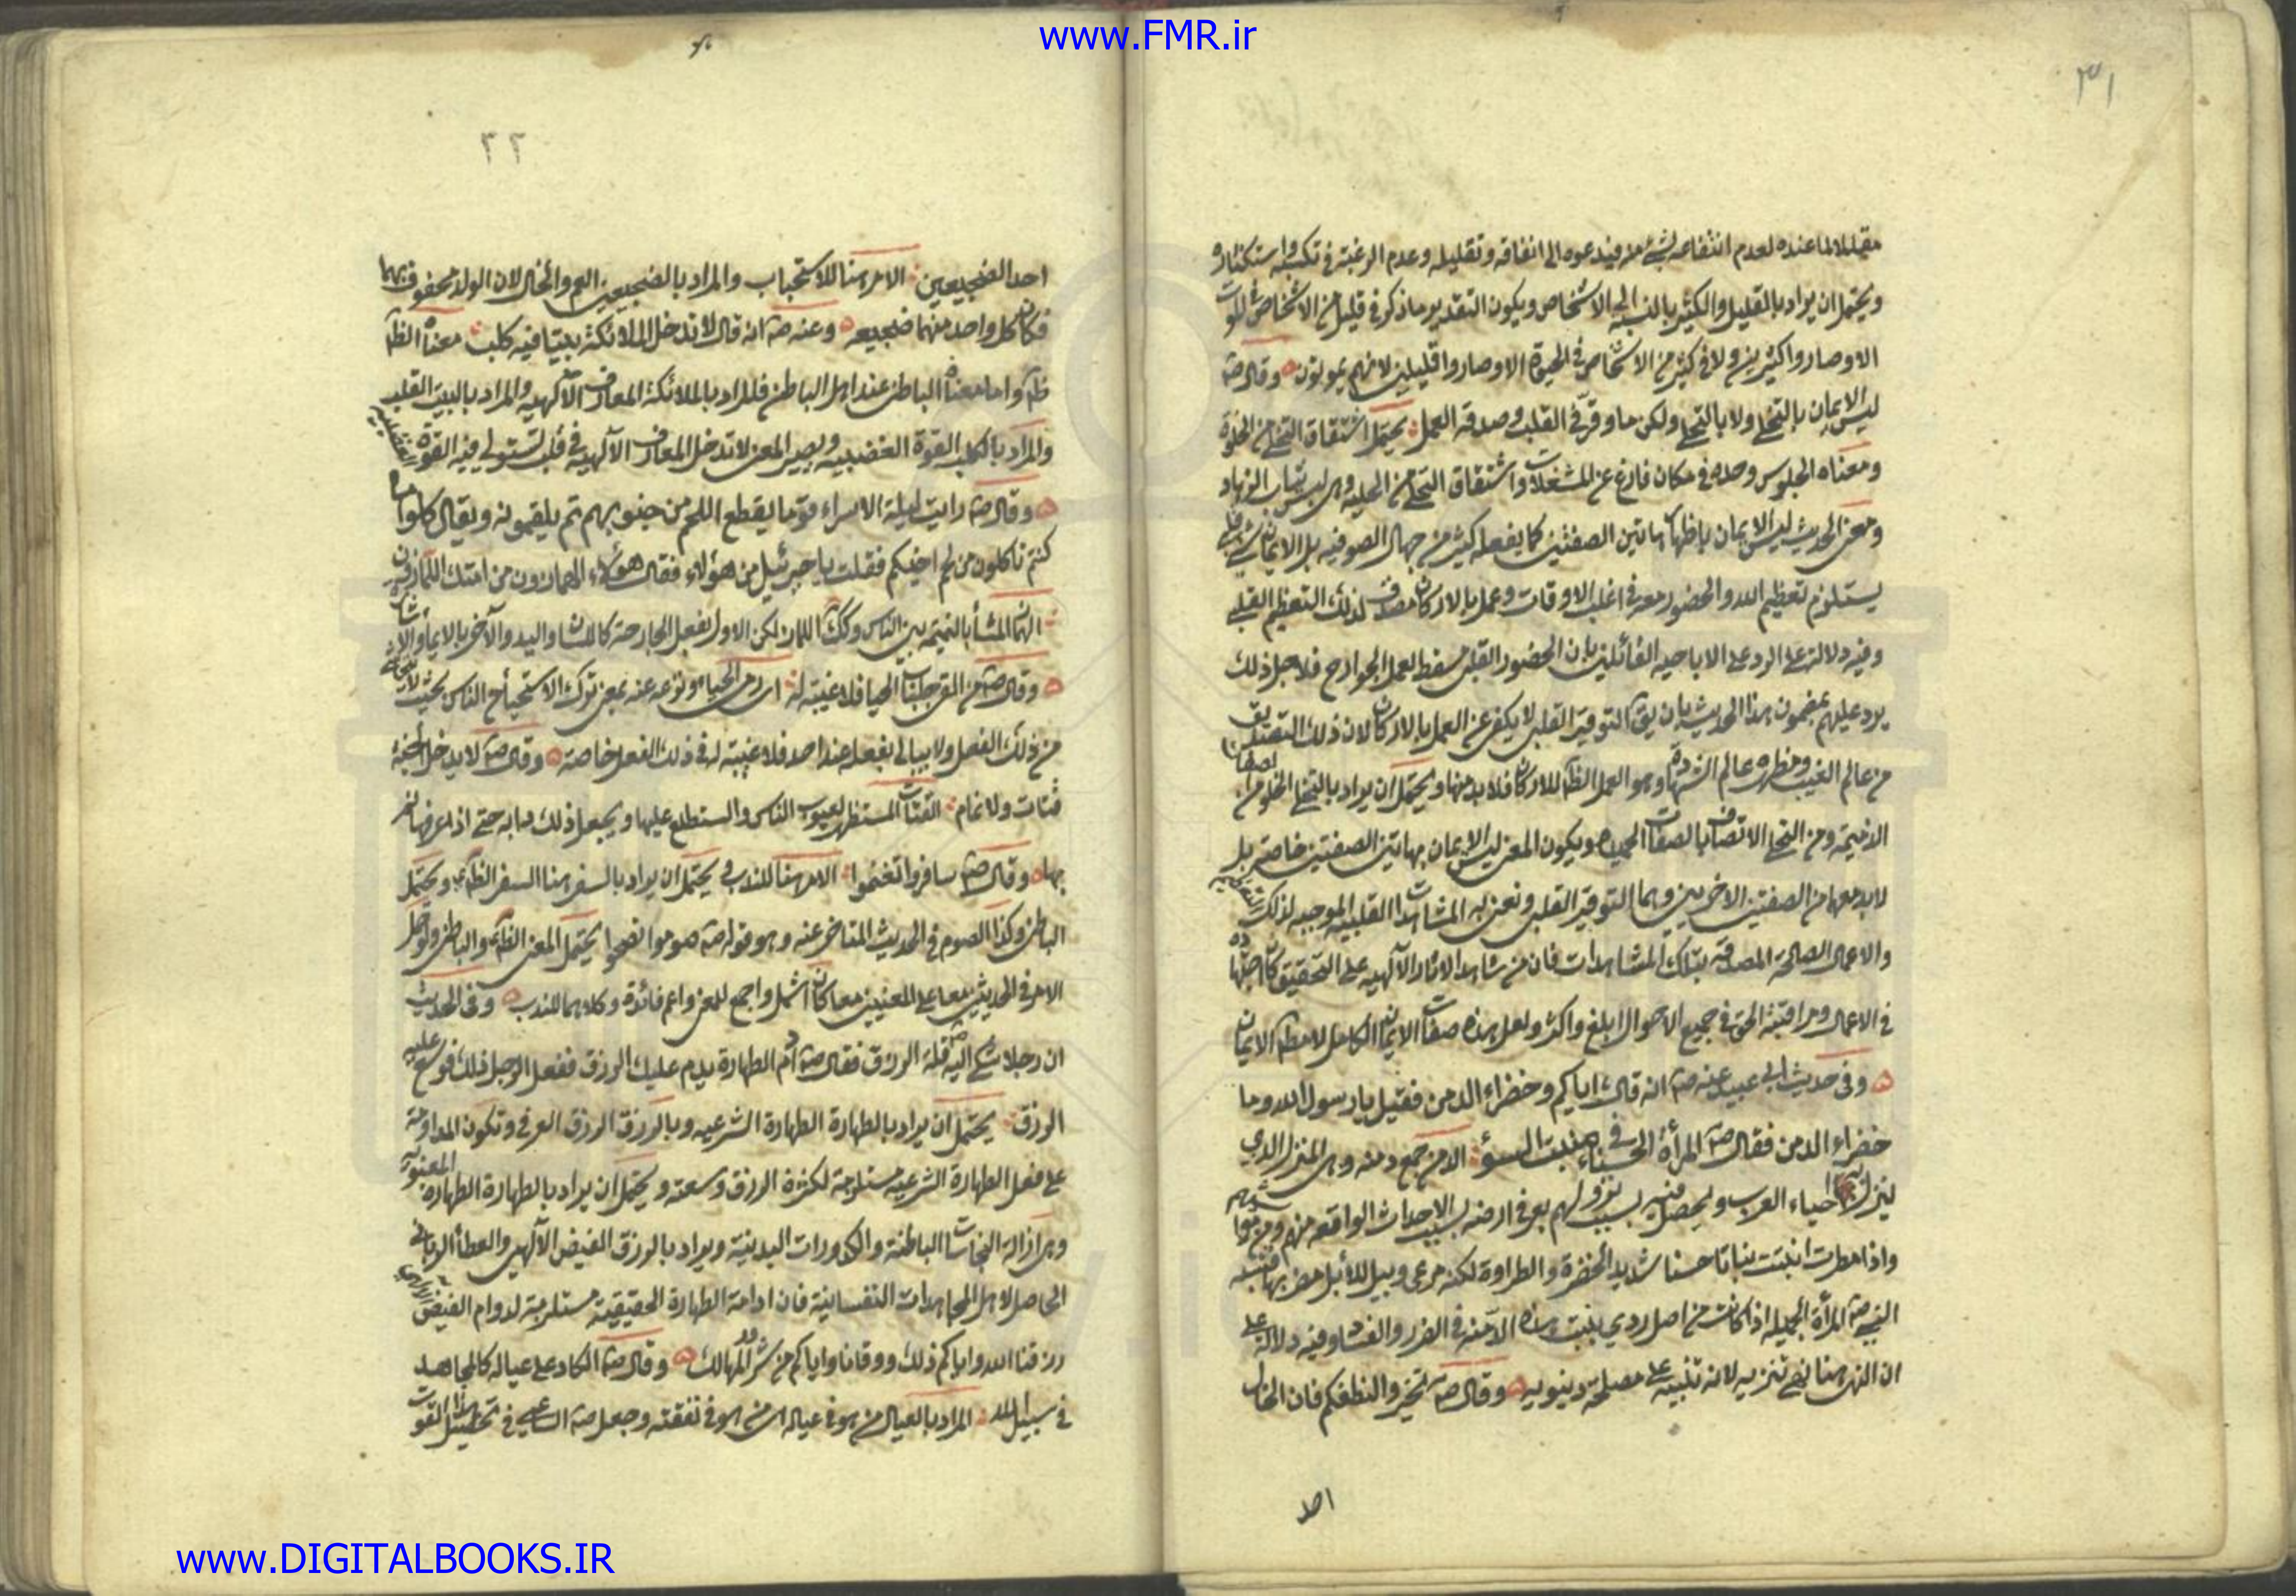 www.FMR.ir
٣١
مقللا لما عنده لعدم انتفاعه بشئ منه فيدعوه الى انفاقه وتقليله وعدم الرغبة في تكسبه واستكثاره
ويحتمل ان يراد بالقليل والكثير بالنسبة الى الاشخاص ويكون التقدير ما ذكر في قليل من الاشخاص في الموت
الا وصاروا كثيرين ولا في كثير من الاشخاص في الحيوة الا وصاروا قليلين لانهم يموتون وقال صه
ليس الايمان بالتخلي ولا بالتحلي ولكن ما وقر في القلب وصدقه العمل يحتمل اشتقاق التخلي من الخلوة
ومعناه الجلوس وحده في مكان فارغ عن المشغلات واشتقاق التحلي من الحلية وهي لبس ثياب الزهاد
ومعنى الحديث ليس الايمان باظهار هاتين الصفتين كما يفعله كثير من جهال الصوفيه بل الايمان
يستلزم تعظيم الله والحضور معه في اغلب الاوقات وعمل بالاركان مصدق لذلك التعظيم القلبي
وفيه دلالة على الرد على الاباحيه القائلين بان الحضور القلبي مسقط لعمل الجوارح فلاجل ذلك
يرد عليهم بمضمون هذا الحديث بان يق التوقير القلبي لا يكفي عن العمل بالاركان لان ذلك التصديق
من عالم الغيب ومظهره عالم الشهادة وهو العمل الظ للاركان فلا بد منها ويحتمل ان يراد بالتخلي الخلو من الصفات
الذميمة ومن التحلي الاتصاف بالصفات الحميده ويكون المعنى ليس الايمان بهاتين الصفتين خاصة بل
لا بد معهما من الصفتين الاخريين وهما التوقير القلبي ونعني به المشاهدات القلبيه الموجبه لذلك
والاعمال الصالحة المصدقة بتلك المشاهدات فان من شاهد الاثار الآلهيه على التحقيق كان اجتهاده
في الاعمال ومراقبته الحق في جميع الاحوال ابلغ واكثر ولعل هذه صفات الايمان الكامل لا مطلق الايمان
وفي حديث ابي عبيد عنه صه انه قال اياكم وخضراء الدمن فقيل يا رسول الله وما
خضراء الدمن فقال صه المرأة الحسناء في منبت السوء الدمن جمع دمنه وهي المنزل الذي
ينزل فيه احياء العرب ويحصل فيه بسبب نزولهم بعر في ارضه بسبب الاحداث الواقعه منهم ومن مواشيهم
واذا مطرت انبتت نباتا حسنا شديد الخضرة والطراوة لكنه مرعى وبيل للابل مضر بها فشبه
النبي صه المرأة الجميله اذا كانت من اصل ردي بنبت هذه الدمنه في الضرر والفساد وفيه دلالة على
ان النهي هنا نهي تنزيه لانه تنبيه على مصلحة دنيويه وقال صه تخيروا لنطفكم فان الخال
احد
٣٢
احد الضجيعين الامر هنا للاستحباب والمراد بالضجيعين العم والخال لان الولد محفوف بهما
فكان كل واحد منهما ضجيعه وعنه صه انه قال لا تدخل الملائكة بيتا فيه كلب معناه الظ
ظ واما معناه الباطن عند اهل الباطن فالمراد بالملائكة المعارف الآلهيه والمراد بالبيت القلب
والمراد بالكلب القوة الغضبيه ويصير المعنى لا تدخل المعارف الآلهيه في قلب تستولي فيه القوة الغضبيه
وقال صه رايت ليلة الاسراء قوما يقطع اللحم من جنوبهم ثم يلقمونه ويقال كلوا ما
كنتم تاكلون من لحم اخيكم فقلت يا جبرئيل من هؤلاء فقال هؤلاء الهمازون من امتك اللمازون
الهماز المشا بالنميمة بين الناس وكك اللماز لكن الاول بفعل الجارحة كاللسان واليد والآخر بالايماء والاشارة
وقال صه من القى جلباب الحيا فلا غيبة له اي رمى الحياء ونزعه عنه بمعنى ترك الاستحياء من الناس بحيث لا يستحي
من ذلك الفعل ولا يبالي بفعله عند احد فلا غيبة له في ذلك الفعل خاصة وقال صه لا يدخل الجنة
قتات ولا نمام القتات المستظهر لعيوب الناس والمستطلع عليها ويجعل ذلك دابه حتى اذا عرفها نم
بها وقال صه سافروا تغنموا الامر هنا للندب ويحتمل ان يراد بالسفر هنا السفر الظاهر ويحتمل
الباطن وكذا الصوم في الحديث المتاخر عنه وهو قوله صه صوموا تصحوا يحتمل المعنى الظ والباطن ولو حمل
الامر في الحديثين معا على المعنيين معا كان اشمل واجمع للمعنى واعم فائدة وكلاهما للندب وفي الحديث
ان رجلا شكى اليه صه قلة الرزق فقال صه ادم الطهارة يدم عليك الرزق ففعل الرجل ذلك فوسع عليه
الرزق يحتمل ان يراد بالطهارة الطهارة الشرعيه وبالرزق الرزق العرفي وتكون المداومة
على فعل الطهارة الشرعيه مستلزمة لكثرة الرزق وسعته ويحتمل ان يراد بالطهارة الطهارة المعنويه
وهي ازالة النجاسات الباطنة والكدورات البدنية ويراد بالرزق الفيض الآلهي والعطاء الرباني
الحاصل لاهل المجاهدات النفسانية فان ادامة الطهارة الحقيقية مستلزمة لدوام الفيض
رزقنا الله واياكم ذلك ووقانا واياكم من شرور المهالك وقال صه الكاد على عياله كالمجاهد
في سبيل الله المراد بالعيال من هو في عياله اي من هو في نفقته وجعل صه الساعي في تحصيل هذا القوت
www.DIGITALBOOKS.IR